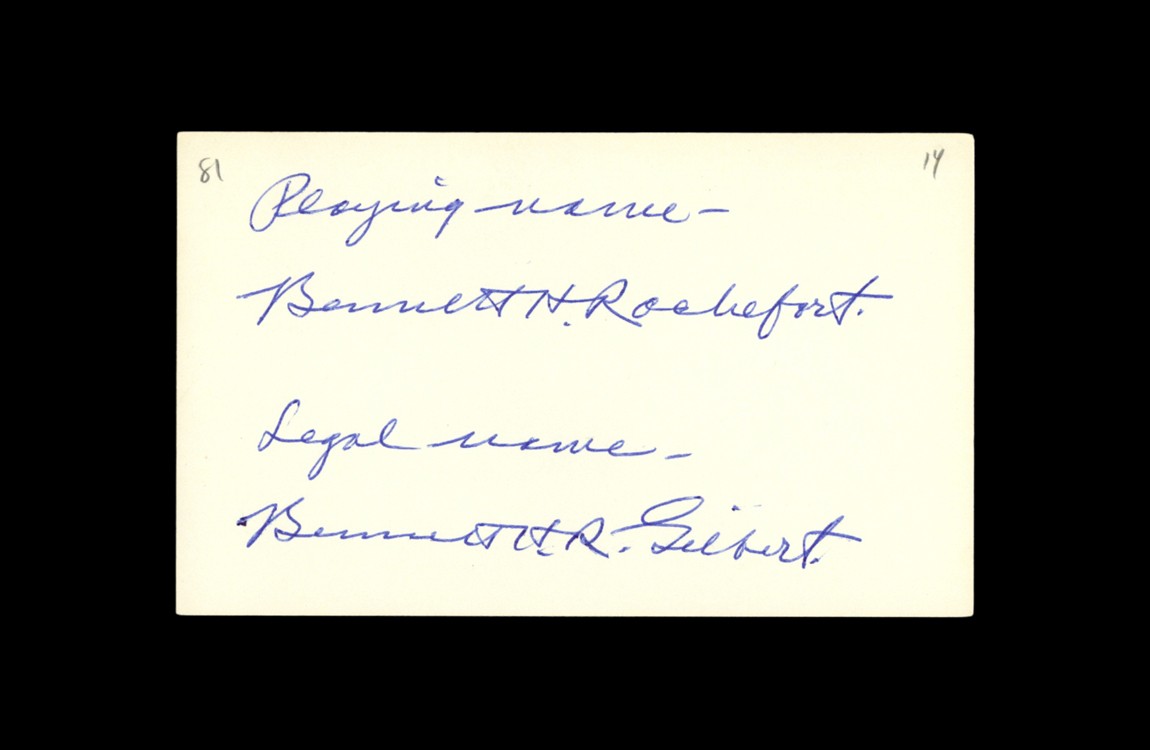 81
14
Playing name-
Bennett H. Rochefort.
Legal name-
Bennett H. R. Gilbert.